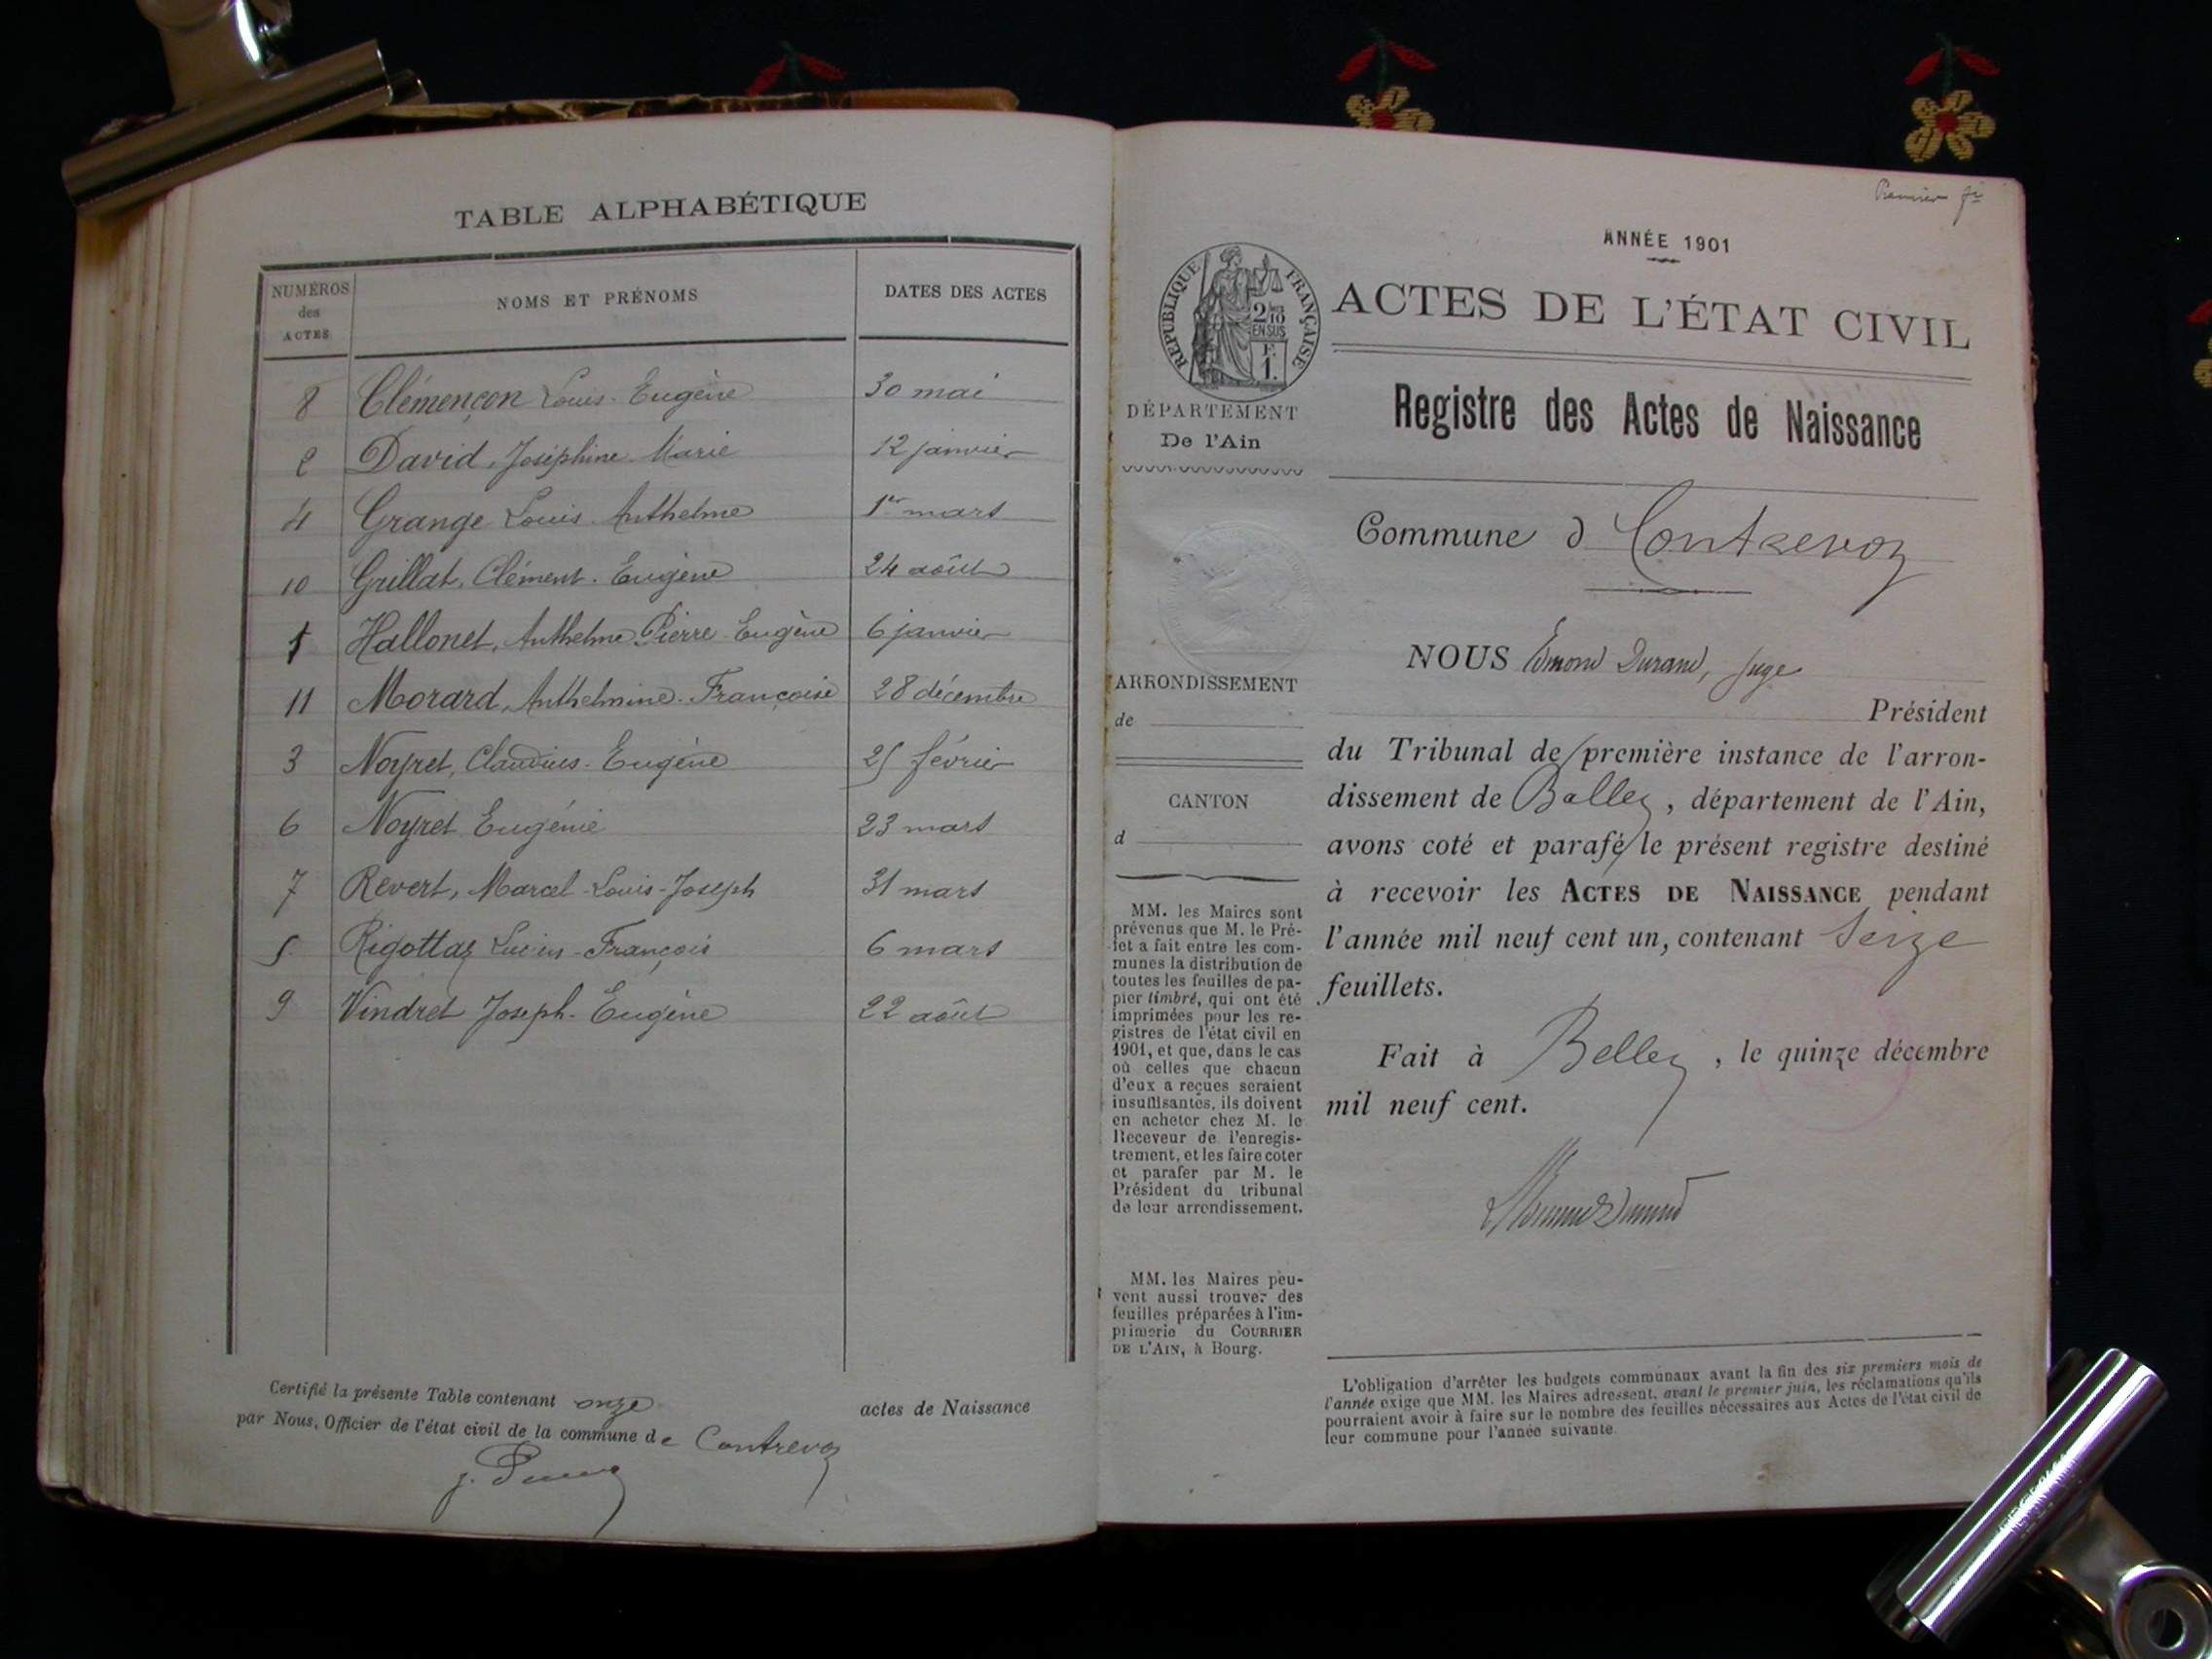 TABLE ALPHABÉTIQUE
NUMÉROS des ACTES
NOMS ET PRÉNOMS
DATES DES ACTES
8 Clémençon Louis-Eugène 30 mai
2 David, Joséphine Marie 12 janvier
4 Grange Louis Anthelme 1er mars
10 Grillat, Clément-Eugène 24 août
1 Hallonet, Anthelme Pierre Eugène 6 janvier
11 Morard, Anthelmine-Françoise 28 décembre
3 Noyret, Claudius-Eugène 25 février
6 Noyret Eugénie 23 mars
7 Revert, Marcel-Louis-Joseph 31 mars
5 Rigottaz Lucien-François 6 mars
9 Vindret Joseph-Eugène 22 août
Certifié la présente Table contenant onze actes de Naissance
par Nous, Officier de l'état civil de la commune de Contrevoz
Premier
ANNÉE 1901
RÉPUBLIQUE FRANÇAISE
2/10
EN SUS
F.
1.
ACTES DE L'ÉTAT CIVIL
Registre des Actes de Naissance
DÉPARTEMENT
De l'Ain
Commune d Contrevoz
ARRONDISSEMENT
de
CANTON
d
MM. les Maires sont
prévenus que M. le Pré-
fet a fait entre les com-
munes la distribution de
toutes les feuilles de pa-
pier timbré, qui ont été
imprimées pour les re-
gistres de l'état civil en
1901, et que, dans le cas
où celles que chacun
d'eux a reçues seraient
insuffisantes, ils doivent
en acheter chez M. le
Receveur de l'enregis-
trement, et les faire coter
et parafer par M. le
Président du tribunal
de leur arrondissement.
MM. les Maires peu-
vent aussi trouver des
feuilles préparées à l'im-
primerie du COURRIER
DE L'AIN, à Bourg.
NOUS Edmond Durand, Juge
Président
du Tribunal de première instance de l'arron-
dissement de Belley, département de l'Ain,
avons coté et parafé le présent registre destiné
à recevoir les ACTES DE NAISSANCE pendant
l'année mil neuf cent un, contenant Seize
feuillets.
Fait à Belley, le quinze décembre
mil neuf cent.
L'obligation d'arrêter les budgets communaux avant la fin des six premiers mois de
l'année exige que MM. les Maires adressent, avant le premier juin, les réclamations qu'ils
pourraient avoir à faire sur le nombre des feuilles nécessaires aux Actes de l'état civil de
leur commune pour l'année suivante.